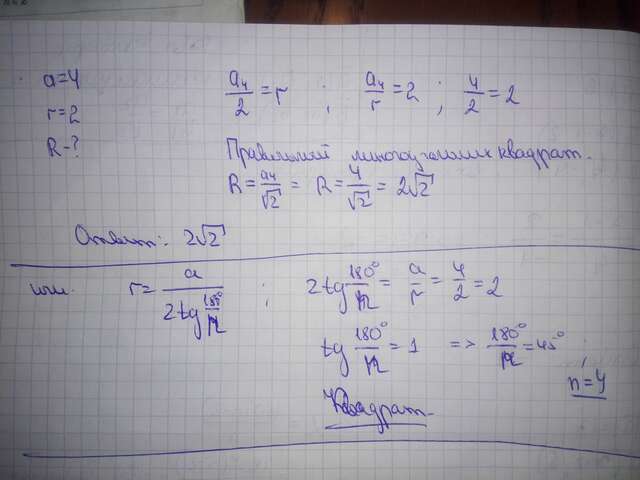 a=4
a₄/2 = r ; a₄/r = 2 ; 4/2 = 2
r=2
R-?
Правильный многоугольник квадрат.
R = a₄/√2 = R = 4/√2 = 2√2
Ответ: 2√2
или. r = a/(2tg 180°/n) ; 2tg 180°/n = a/r = 4/2 = 2
tg 180°/n = 1 => 180°/n = 45° ;
n=4
Квадрат.